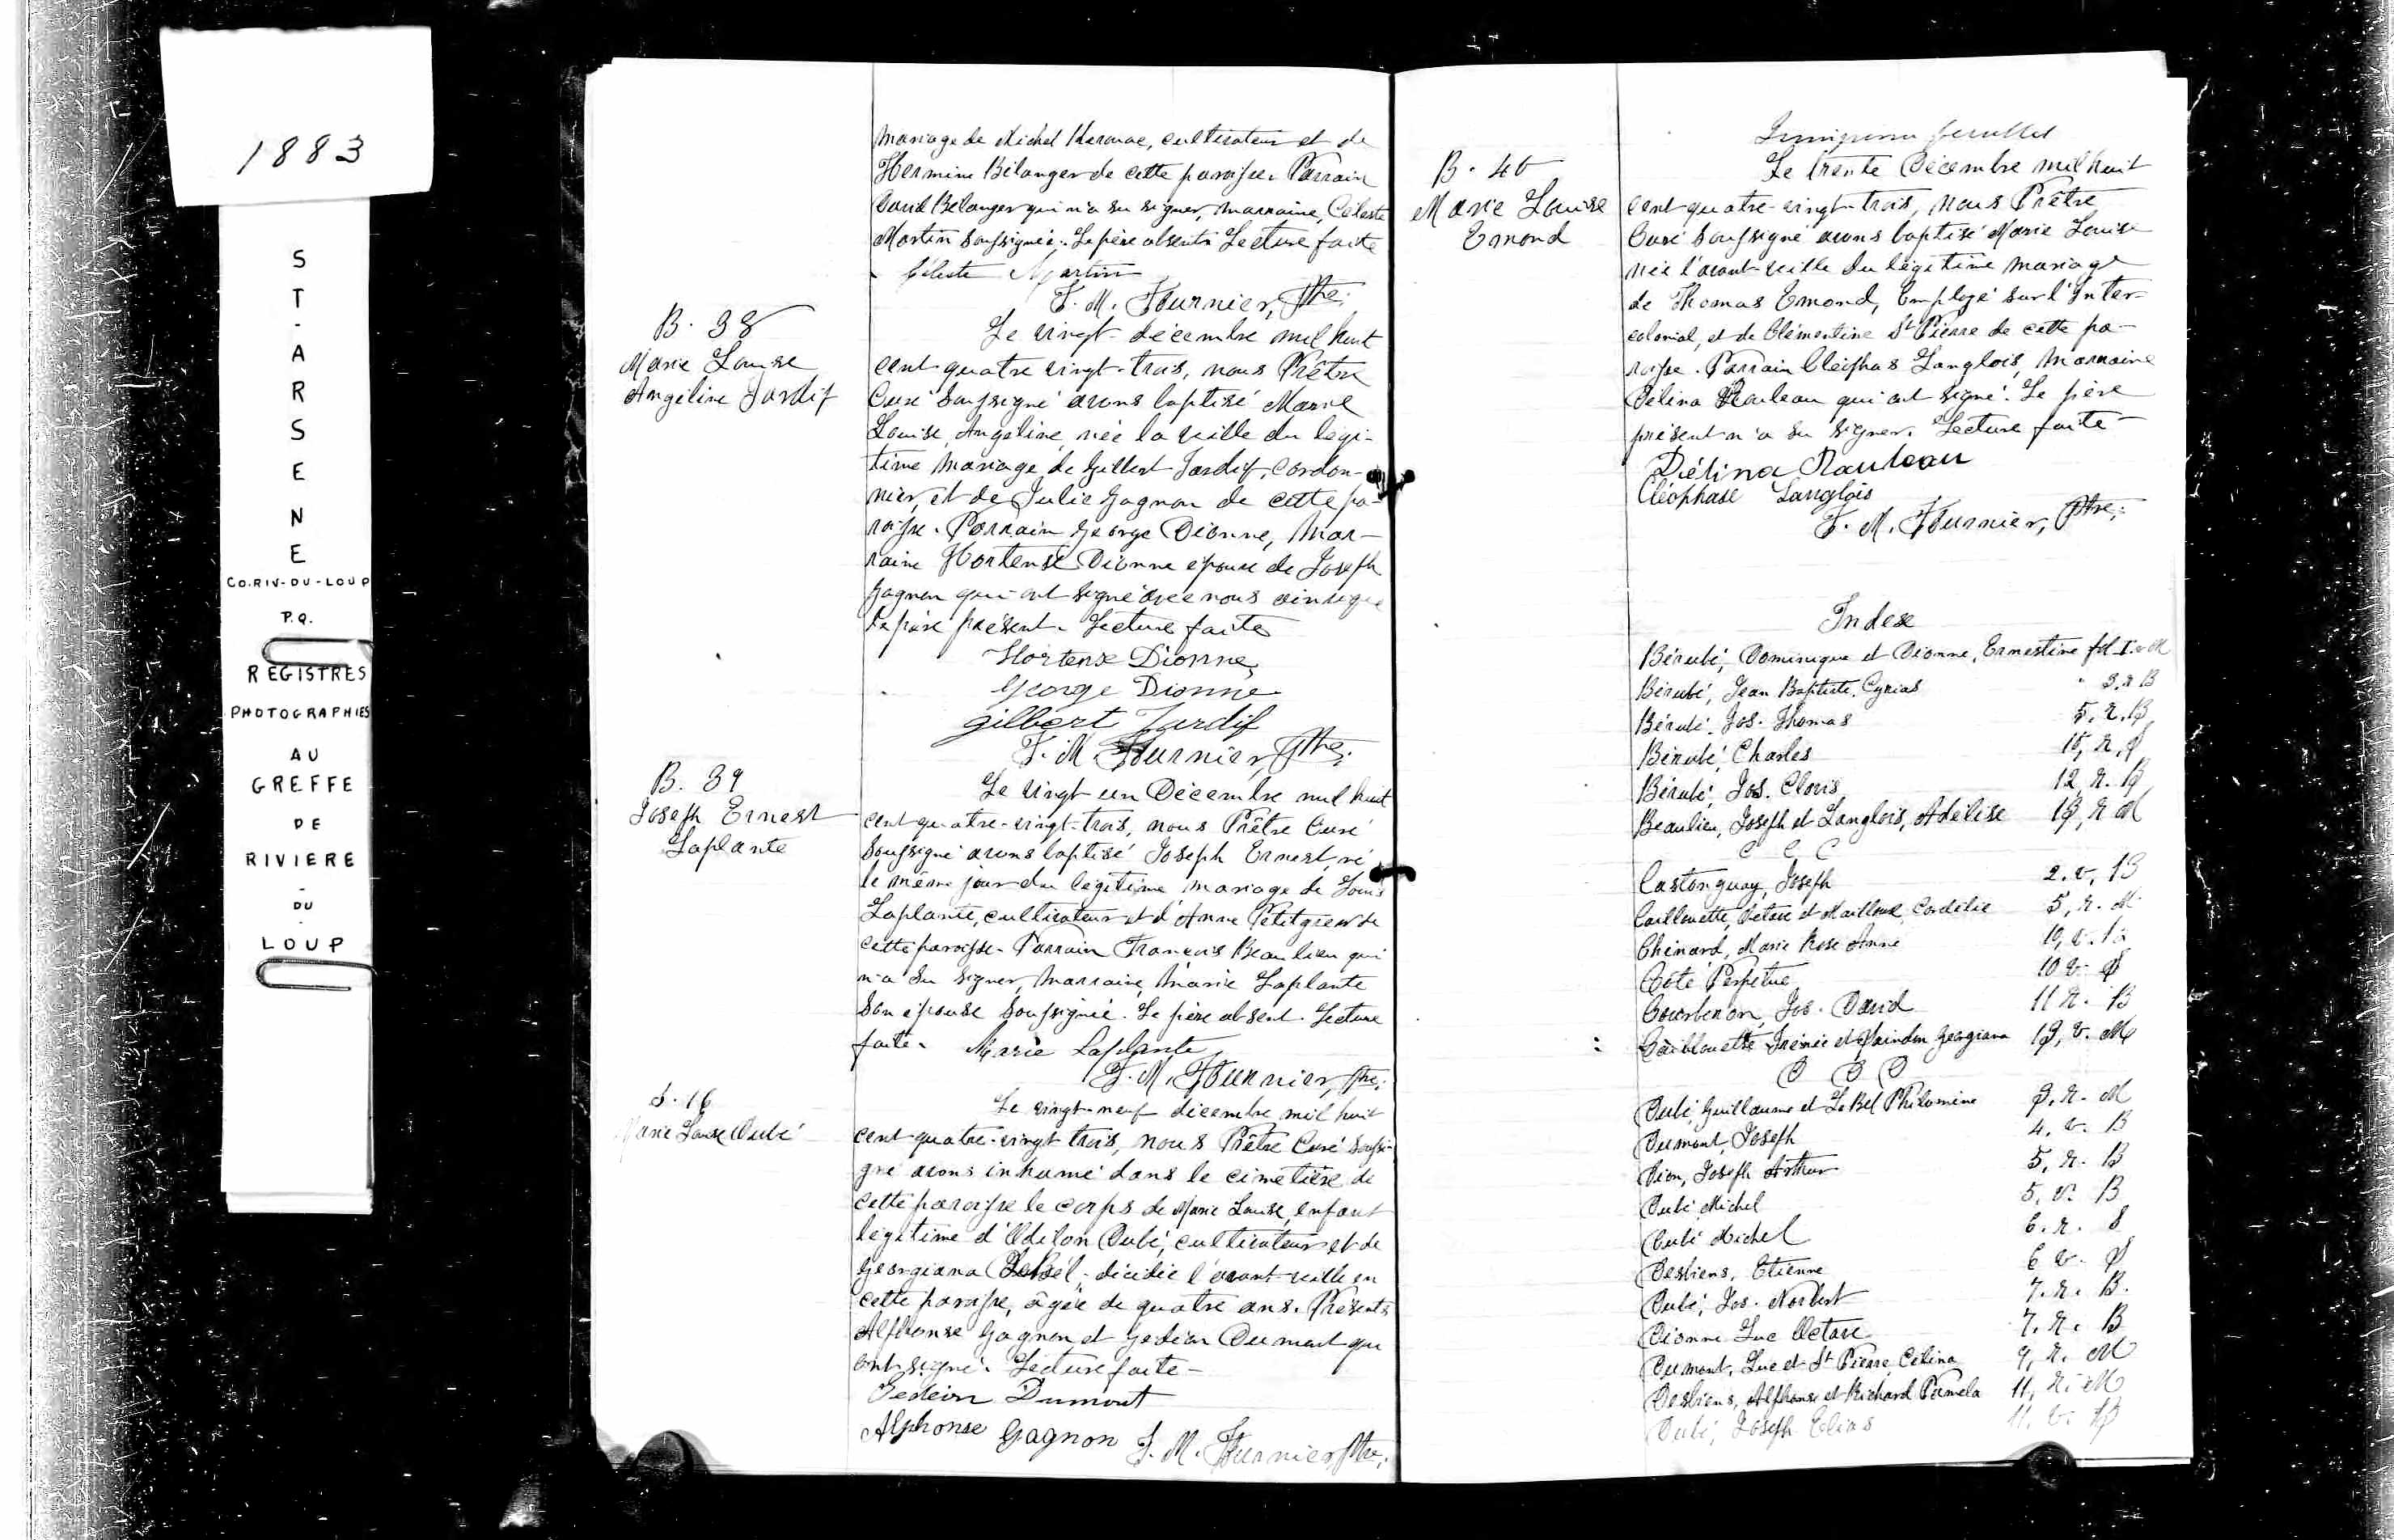 1883
ST-ARSENE
CO.RIV-DU-LOUP
P.Q.
REGISTRES
PHOTOGRAPHIES
AU
GREFFE
DE
RIVIERE
-
DU
-
LOUP
mariage de Michel Kerouac, cultivateur et de
Hermine Bélanger de cette paroisse. Parrain
David Belanger qui n'a su signer, marraine, Céleste
Martin soussignée. Le père absent. Lecture faite
Céleste Martin
J. M. Fournier, Ptre.
B. 38
Marie Louise
Angéline Tardif
Le vingt décembre mil huit
cent quatre vingt-trois, nous Prêtre
Curé soussigné avons baptisé Marie
Louise Angéline, née la veille du légi-
time mariage de Gilbert Tardif, cordon-
nier, et de Julie Gagnon de cette pa-
roisse. Parrain George Dionne, Mar-
raine Hortense Dionne épouse de Joseph
Gagnon qui ont signé avec nous ainsi que
le père présent. Lecture faite
Hortense Dionne
George Dionne
Gilbert Tardif
J. M. Fournier, Ptre.
B. 39
Joseph Ernest
Laplante
Le vingt un Décembre mil huit
cent quatre-vingt-trois, nous Prêtre Curé
soussigné avons baptisé Joseph Ernest, né
le même jour du légitime mariage de Louis
Laplante, cultivateur et d'Anne Petitgrew de
cette paroisse. Parrain François Beaulieu qui
n'a su signer, marraine, Marie Laplante
son épouse soussignée. Le père absent. Lecture
faite. Marie Laplante
J. M. Fournier, Ptre.
S. 16
Marie Louise Dubé
Le vingt-neuf décembre mil huit
cent quatre-vingt trois, nous Prêtre Curé soussi-
gné avons inhumé dans le cimetière de
cette paroisse le corps de Marie Louise, enfant
légitime d'Odilon Dubé, cultivateur et de
Georgiana LeBel, décédée l'avant-veille en
cette paroisse, âgée de quatre ans. Présents
Alphonse Gagnon et Gedéon Dumont qui
ont signé. Lecture faite -
Gedéon Dumont
Alphonse Gagnon J. M. Fournier Ptre.
feuillet
B. 40
Marie Louise
Emond
Le trente Décembre mil huit
cent quatre-vingt-trois, nous Prêtre
Curé soussigné avons baptisé Marie Louise
née l'avant-veille du légitime mariage
de Thomas Emond, Employé sur l'Inter-
colonial, et de Clémentine St Pierre de cette pa-
roisse. Parrain Cléophas Langlois, Marraine
Délina Rouleau qui ont signé. Le père
présent n'a su signer. Lecture faite -
Délina Rouleau
Cléophase Langlois
J. M. Fournier, Ptre.
Index
Bérubé, Dominique et Dionne, Ernestine fol 1. v M
Bérubé, Jean Baptiste, Cyrias " 3. r B
Bérubé, Jos. Thomas 5, r. B
Bérubé, Charles 15, r. S
Bérubé, Jos. Clovis 12, r. B
Beaulieu, Joseph et Langlois, Adélise 13, r M
C C C
Castonguay, Joseph 2. v, B
Caillouette, Octave et Mailloux, Cordélie 5, r. M
Chénard, Marie Rose Anne 10, v. B
Coté Perpétue 10 v. S
Courberon, Jos. David 11 r. B
Caillouette Irénée et Paindon Georgiana 13, v. M
D D D
Dubé, Guillaume et LeBel Philomine 3, r. M
Dumont, Joseph 4, v. B
Dion, Joseph Arthur 5, r. B
Dubé, Michel 5, v. B
Dubé Michel 6. r. S
Desbiens, Etienne 6 v. S
Dubé, Jos. Norbert 7. r. B.
Dionne Luc Octave 7. r. B
Dumont, Luc et St Pierre Célina 9, r. M
Desbiens, Alphonse et Richard Pamela 11, r. M
Dubé, Joseph Elias 11. v. B